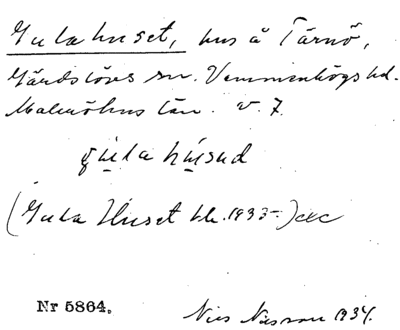 Gula huset, hus å Tärnö,
Gärdslövs sn. Vemmenhögs hd.
Malmöhus län. v. 7.
gula húsud
(Gula Huset bl. 1935-) exc
Nr 5864.
Nils Nilsson 1934.